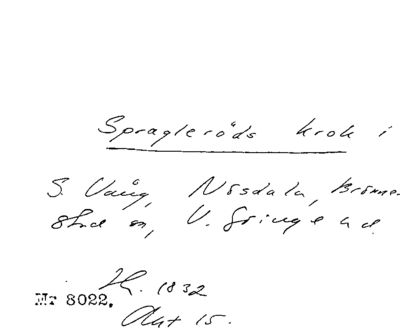 Spragleröds krok i
S. Vång, Nösdala, Brönne-
stad m, V. Göinge h d.
Hr. 1832
Mr 8022.
Akt 15.